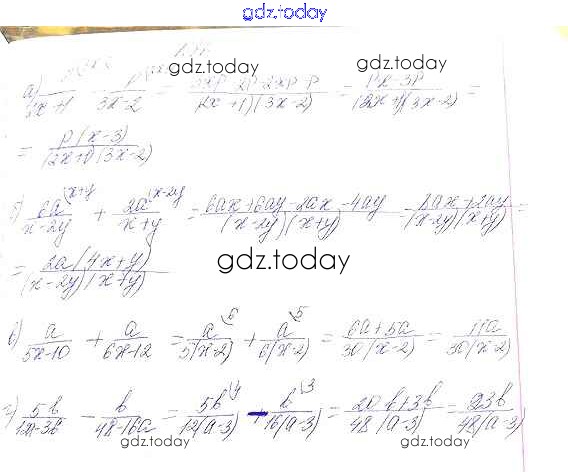 gdz.today
gdz.today gdz.today
а) /(2x+1) - p/(3x-2) = (3xp-2p-2xp-p)/((2x+1)(3x-2)) = (px-3p)/((2x+1)(3x-2)) =
= p(x-3)/((2x+1)(3x-2))
б) 6a/(x-2y) \x+y + 2a/(x+y) \x-2y = (6ax+6ay+2ax-4ay)/((x-2y)(x+y)) = (8ax+2ay)/((x-2y)(x+y)) =
= 2a(4x+y)/((x-2y)(x+y))
gdz.today
в) a/(5x-10) + a/(6x-12) = a/(5(x-2)) \6 + a/(6(x-2)) \5 = (6a+5a)/(30(x-2)) = 11a/(30(x-2))
г) 5b/(12a-36) - b/(48-16a) = 5b/(12(a-3)) \4 + b/(16(a-3)) \3 = (20b+3b)/(48(a-3)) = 23b/(48(a-3))
gdz.today gdz.today